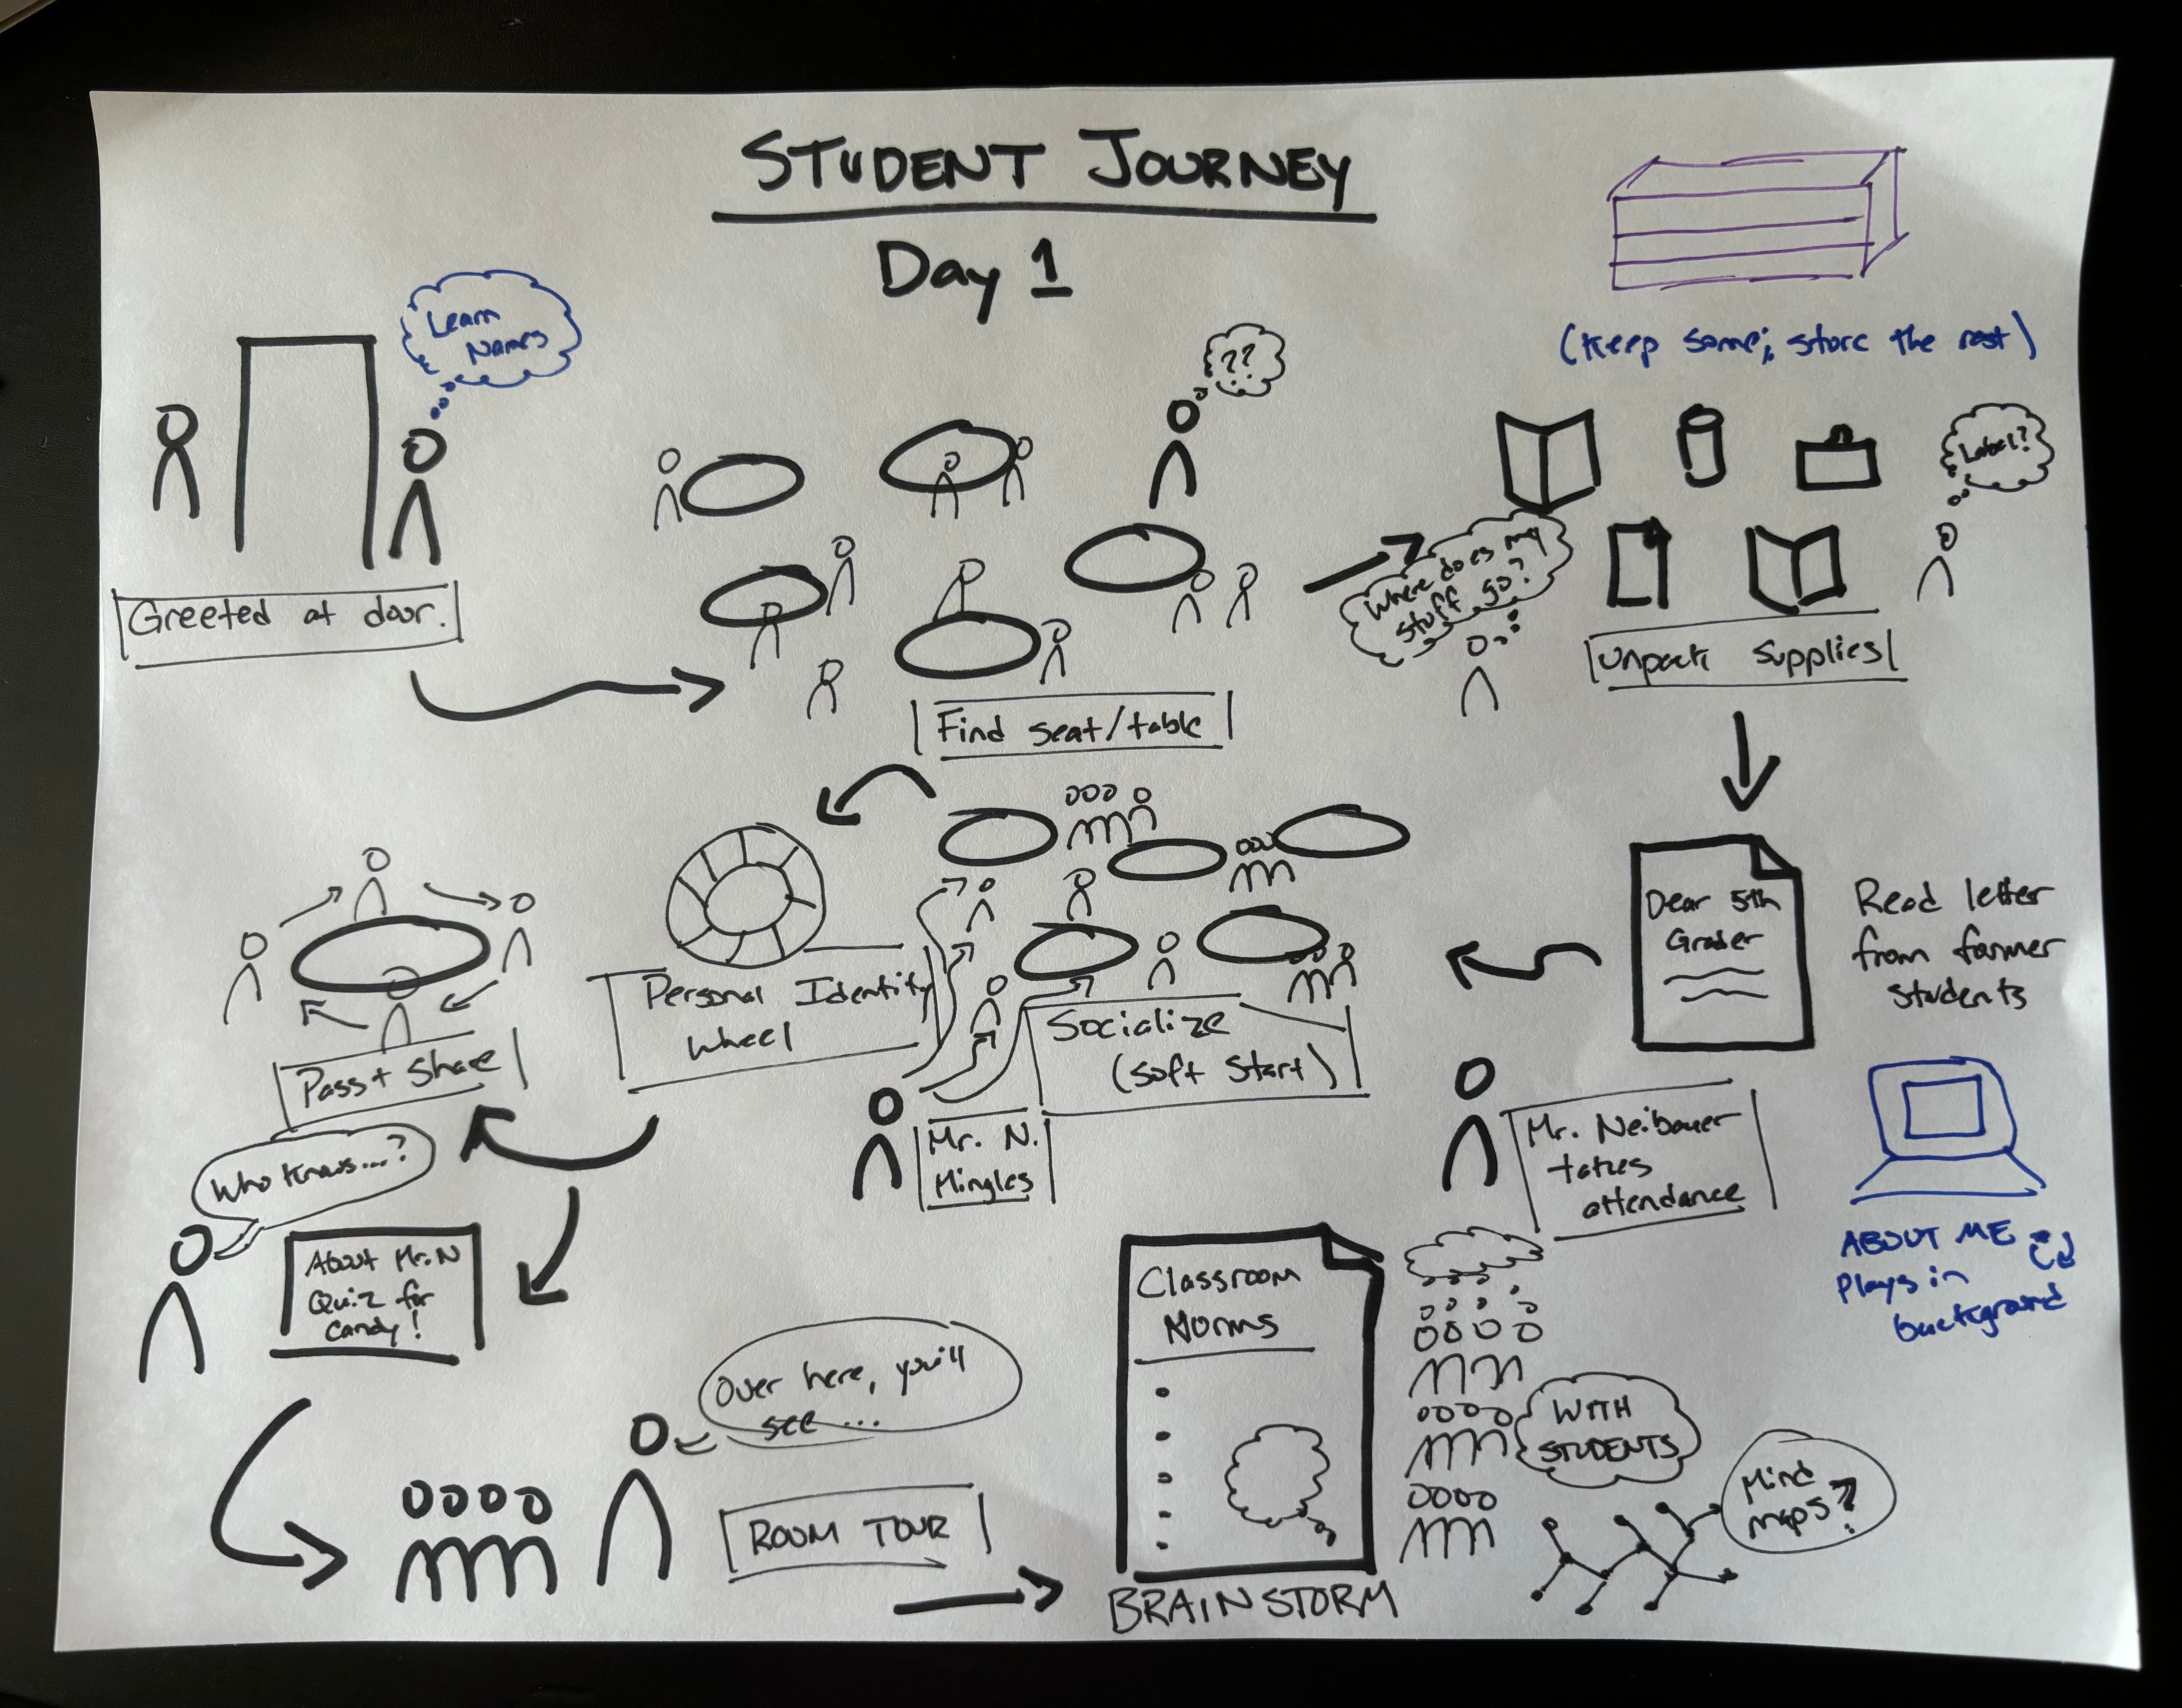 STUDENT JOURNEY
Day 1
Learn
Names
Greeted at door.
??
Find seat/table
(Keep some; store the rest)
Label?
Where does my
stuff go?
Unpack Supplies
Dear 5th
Grader
Read letter
from former
students
Mr. Neibauer
takes
attendance
ABOUT ME
Plays in
background
Socialize
(soft start)
Mr. N.
Mingles
Personal Identity
Wheel
Pass + Share
Who Knows...?
About Mr. N
Quiz for
Candy!
Over here, you'll
see...
ROOM TOUR
Classroom
Norms
BRAINSTORM
WITH
STUDENTS
Mind
maps?